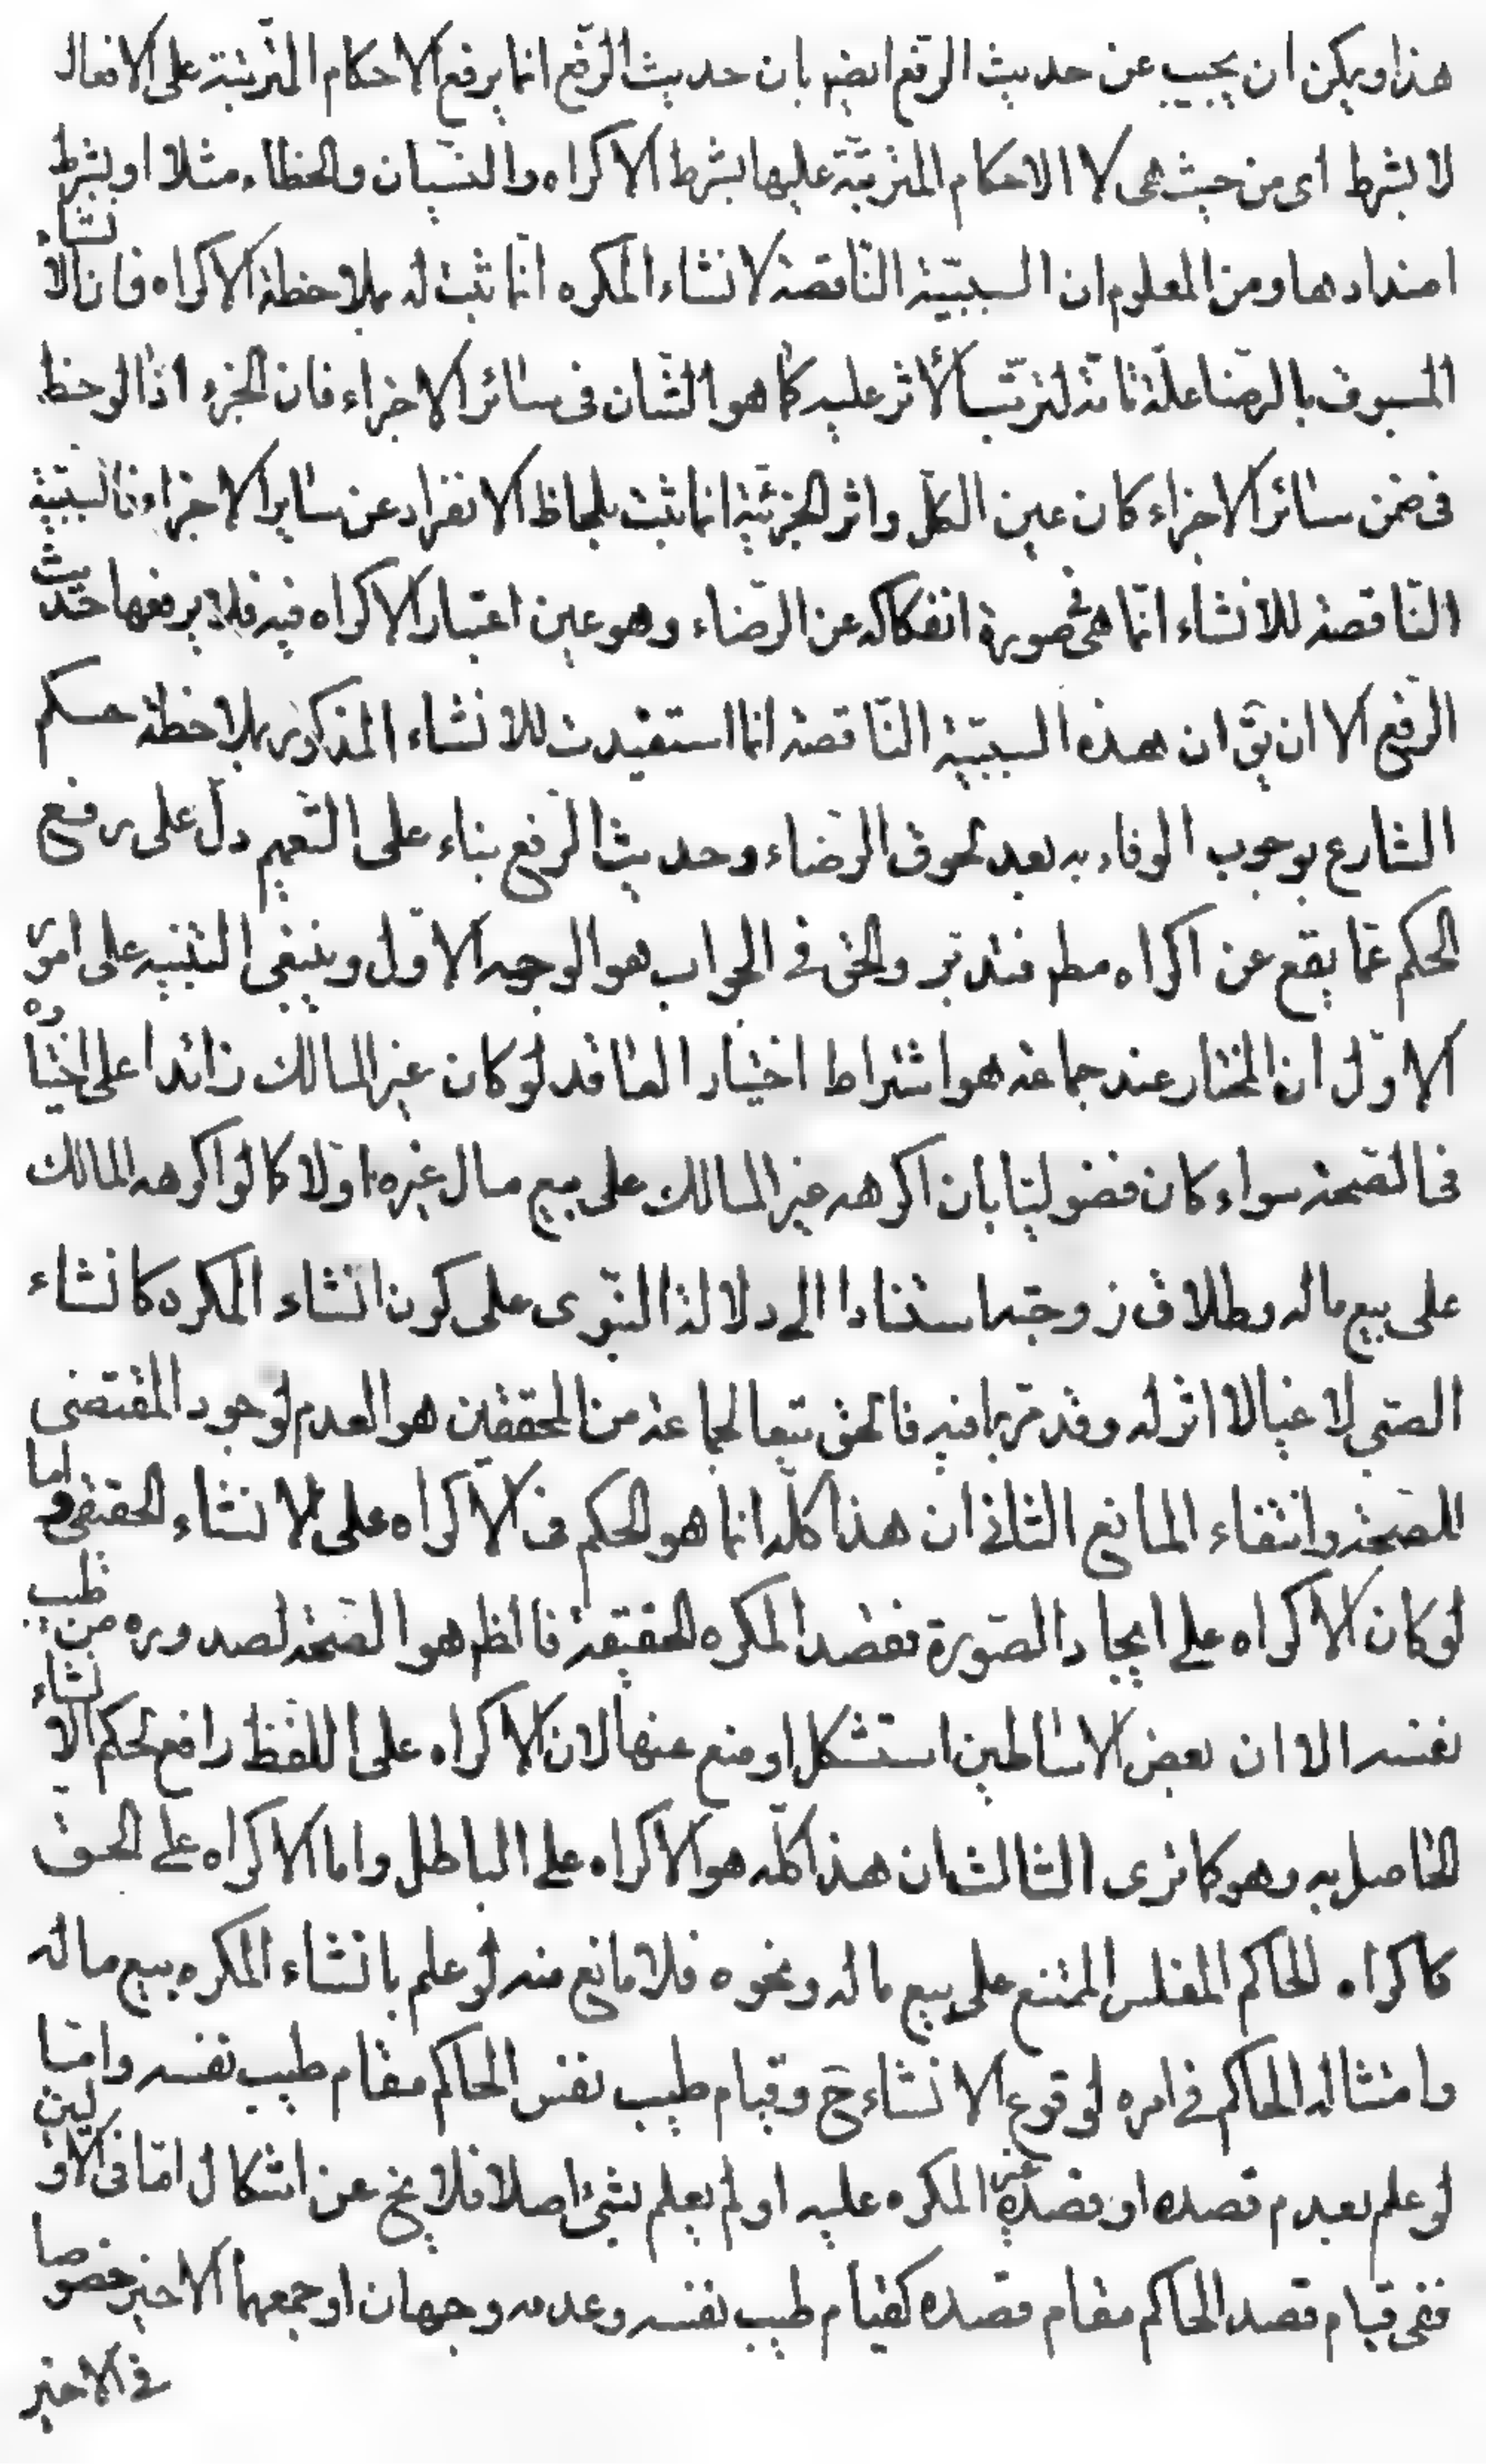 هذا ويمكن ان يجيب عن حديث الرفع ايضم بان حديث الرّفع انما يرفع الاحكام المترتبة على الافعال
لا بشرط اى من حيث هى لا الاحكام المترتبة عليها بشرط الاكراه والنسيان والخطاء مثلا او بشرط
امتدادها ومن المعلوم ان السببيّة النّاقصة لانشاء المكره انما ثبت له بملاحظة الاكراه فان الانشاء
المسبوق بالرضا علّة تامّة لترتب الأثر عليه كما هو الشان فى سائر الاجزاء فان الجزء اذا لوحظ
فى ضمن سائر الاجزاء كان عين الكل واثر الجزئية انما يثبت بلحاظ الانفراد عن ساير الاجزاء فالسببية
النّاقصة للانشاء انّما هى فى صورة انفكاكه عن الرّضاء وهو عين اعتبار الاكراه فيه فلا يرفعها حديث
الرّفع الا ان يقّ ان هذه السببيّة النّاقصة انما استفيدت للانشاء المذكور بملاحظة حكم
الشارع بوجوب الوفاء به بعد لحوق الرّضاء وحديث الرفع بناء على التعميم دلّ على رفع
الحكم عمّا يقع عن اكراه مطم فتدبّر والحق فى الجواب هو الوجه الاوّل وينبغى التنبيه على امور
الاوّل ان المختار عند جماعة هو اشتراط اختيار العاقد لو كان غير المالك زائدا على اختياره
فى الصّحة سواء كان فضوليّا بان اكرهه غير المالك على بيع مال غيره اولا كما لو اكرهه المالك
على بيع ماله وطلاق زوجته استنادا الى دلالة النّبوى على كون انشاء المكره كانشاء
الصّبى لاغيا لا اثر له وقد مرّ ما فيه فالحق تبعا لجماعة من المحققين هو العدم لوجود المقتضى
للصّحة وانتفاء المانع الثانى ان هذا كلّه انما هو الحكم فى الاكراه على الانشاء الحقيقى واما
لو كان الاكراه على ايجاد الصّورة فقصد المكره الحقيقة فالظم هو الصّحة لصدوره من طيب
نفسه الا ان بعض الاساطين استشكل او منع عنها لان الاكراه على اللفظ رافع لحكم الانشاء
الحاصل به وهو كما ترى الثالث ان هذا كلّه هو الاكراه على الباطل واما الاكراه على الحق
كاكراه الحاكم المفلس الممتنع على بيع ماله ونحوه فلا مانع منه لو علم بانشاء المكره ببيع ماله
وامتثاله الحاكم فى امره لوقوع الانشاء ح وقيام طيب نفس الحاكم مقام طيب نفسه وامّا
لو علم بعدم قصده او قصده غير المكره عليه او لم يعلم بشئ اصلا فلا يخ عن اشكال امّا فى الاولين
ففى قيام قصد الحاكم مقام قصده كقيام طيب نفسه وعدمه وجهان اوجههما الاخير خصوصا
فى الاخير